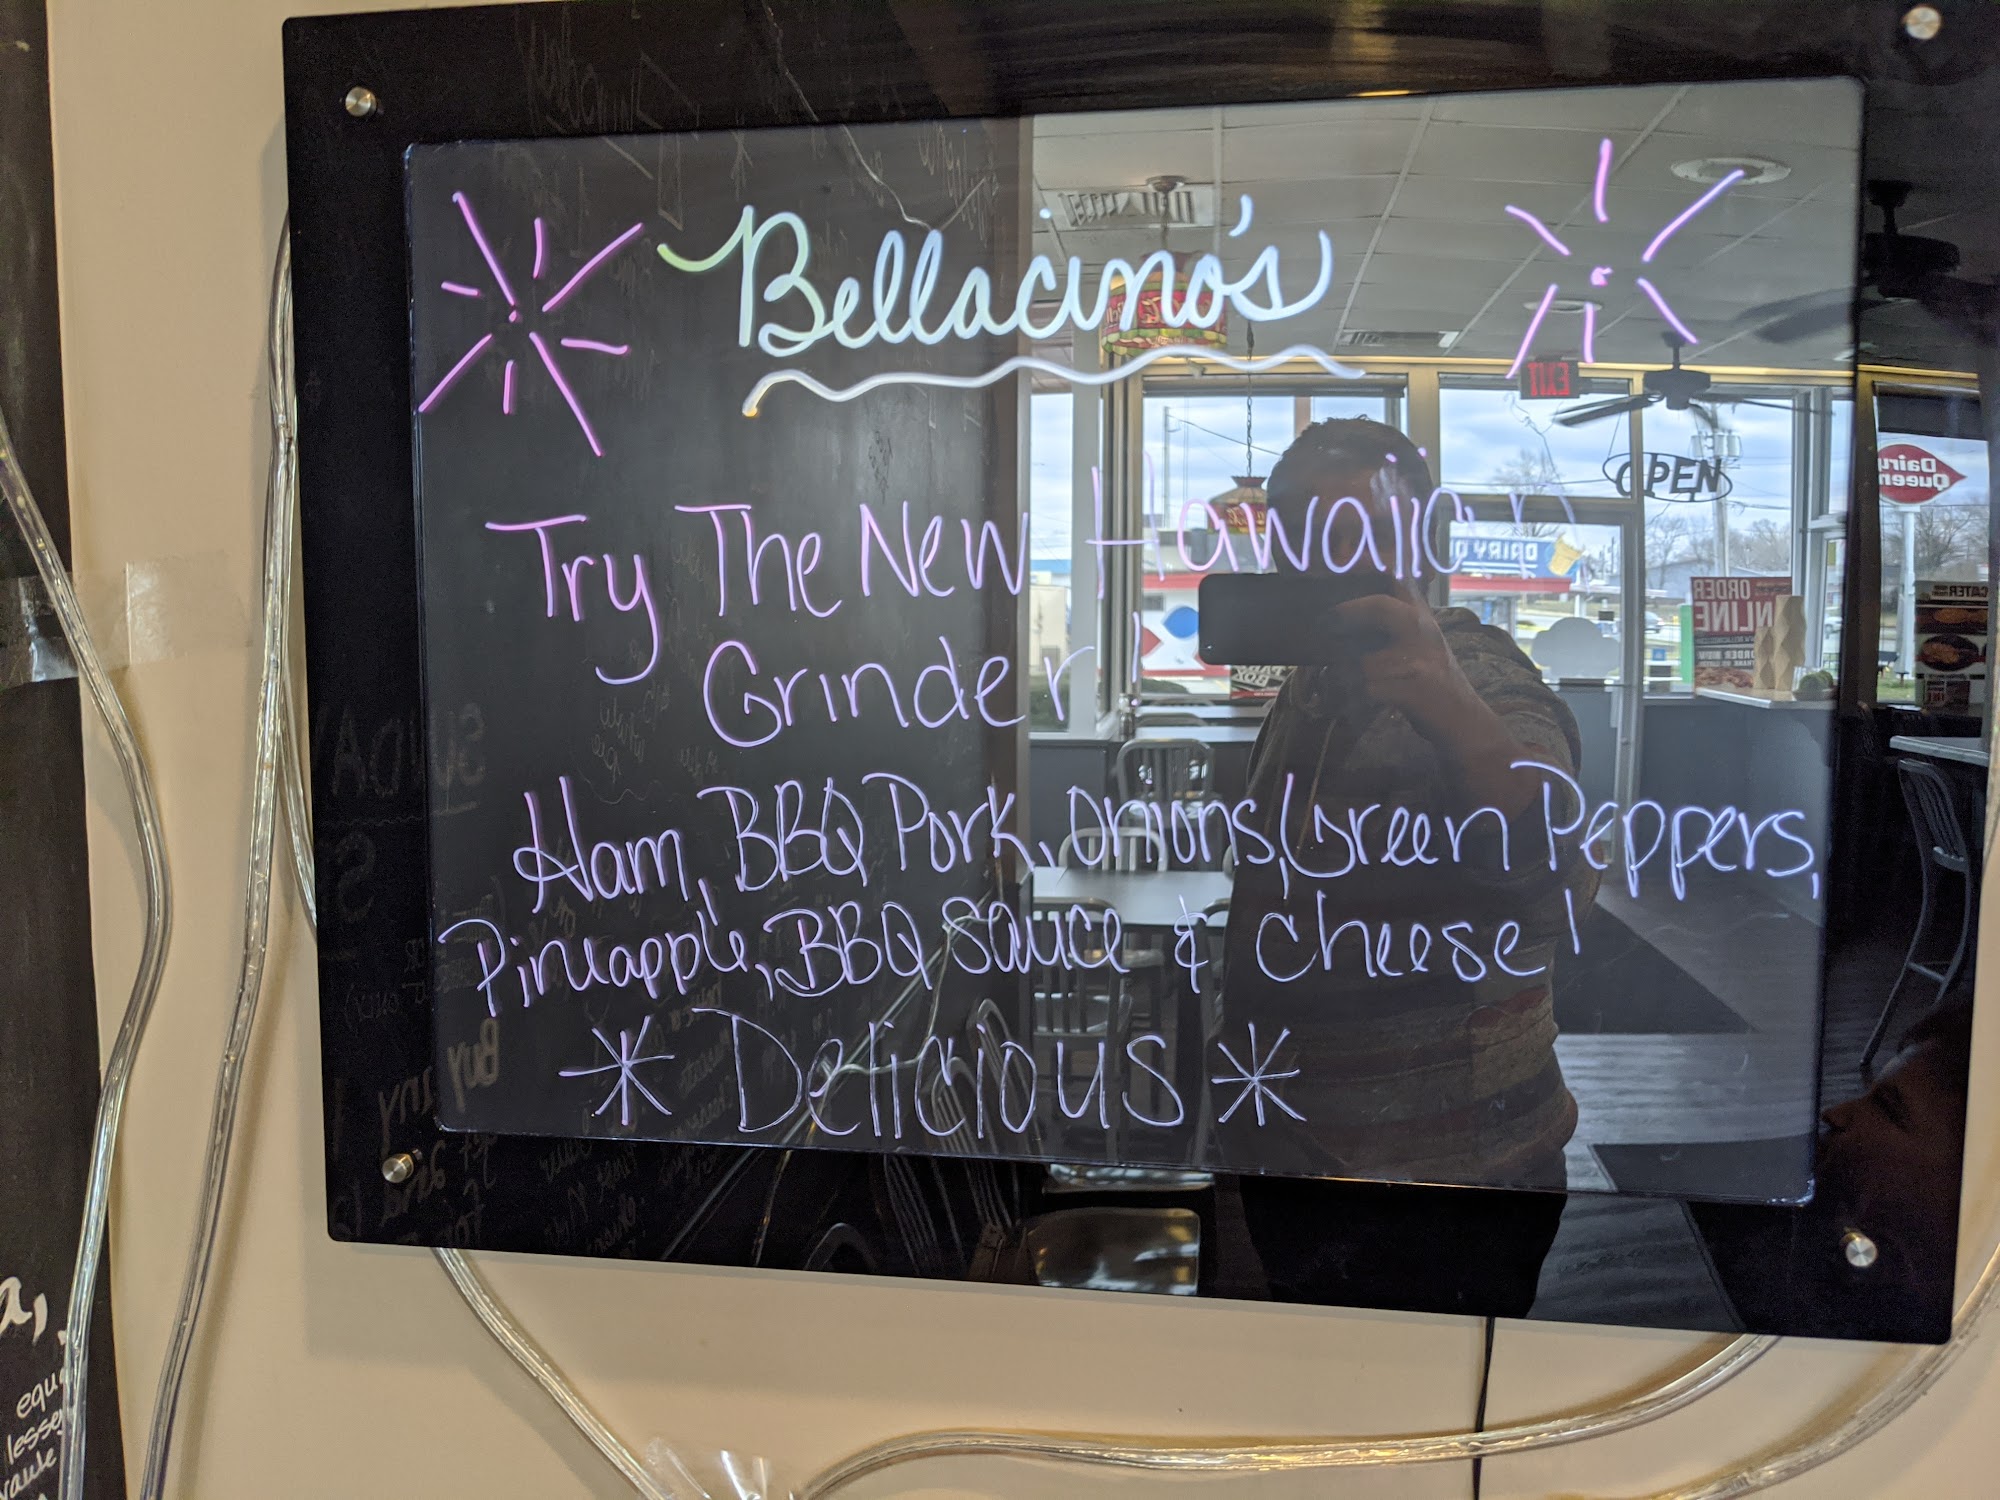 Bellacino's
Try The New Hawaiian
Grinder!
Ham, BBQ Pork, onions, Green Peppers,
Pineapple, BBQ Sauce & cheese!
* Delicious *
EXIT
OPEN
Dairy
Queen
DAIRY QU
ORDER
NLINE
CATER
BUY
a,
equ
lesse